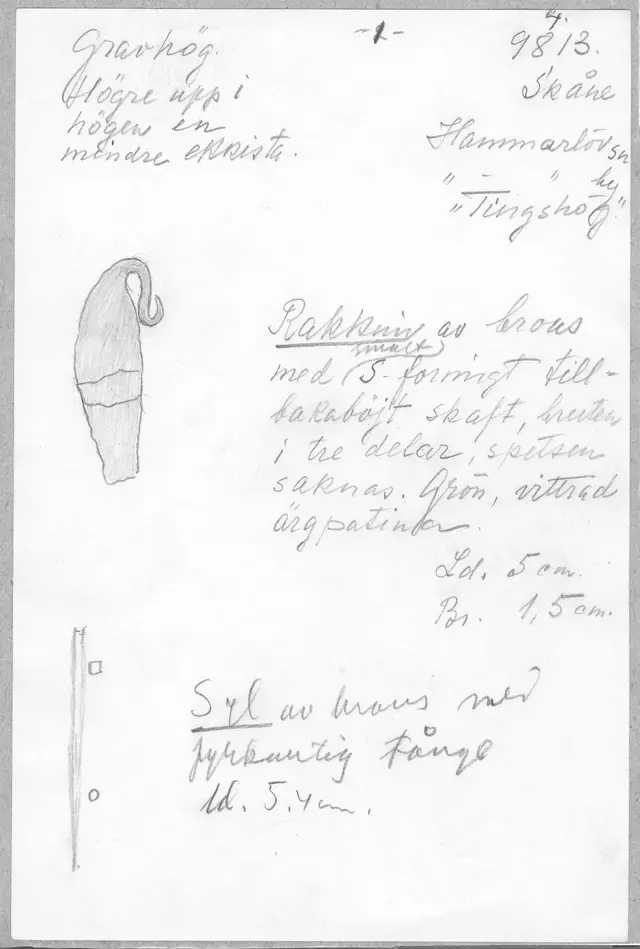 -1-
4.
9813.
Gravhög.
Högre upp i
högen en
mindre ekkista.
Skåne
Hammarlöv sn
" - " by
"Tingshög"
Rakkniv av brons
smalt
med S-formigt till-
bakaböjt skaft, bruten
i tre delar, spetsen
saknas. Grön, vittrad
ärgpatina.
Ld. 5 cm.
Br. 1,5 cm.
Syl av brons med
fyrkantig tånge
ld. 5.4 cm.